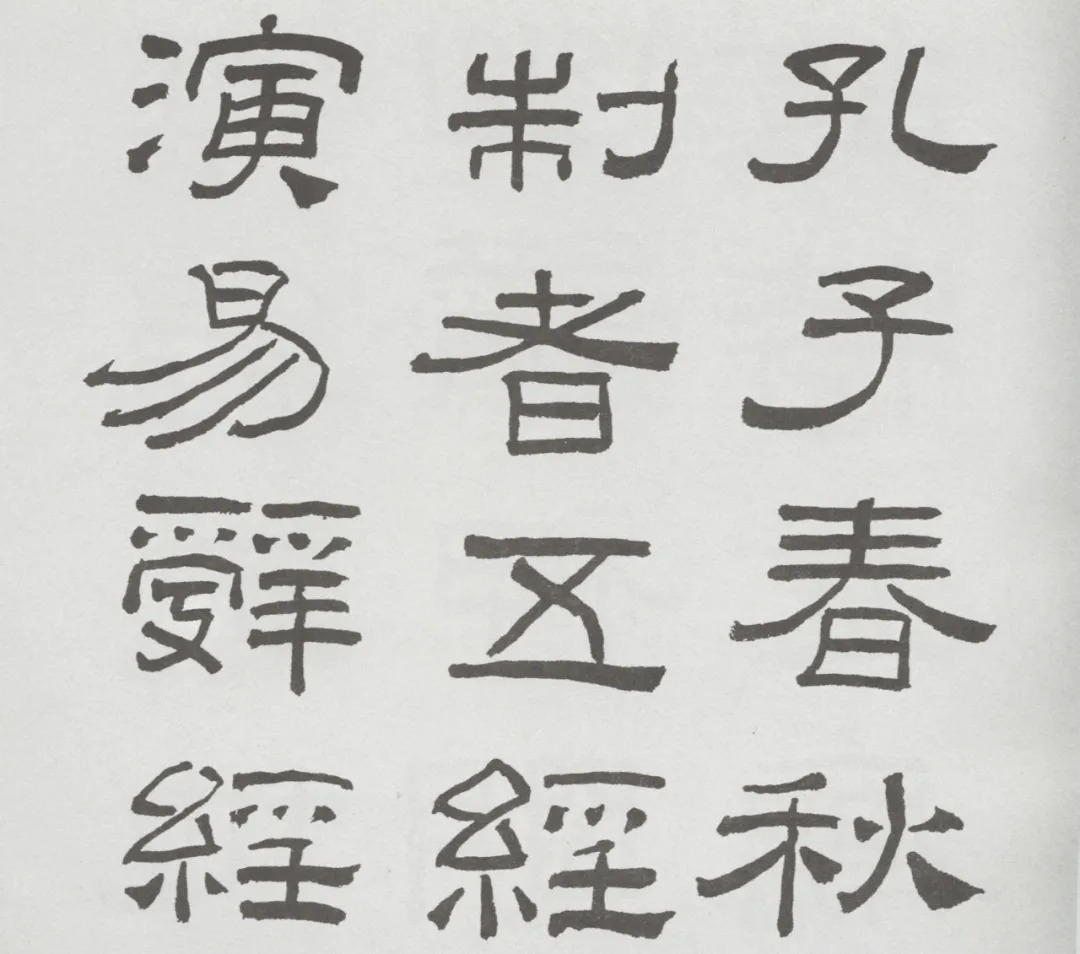 孔子春秋
制者五經
演易辭經